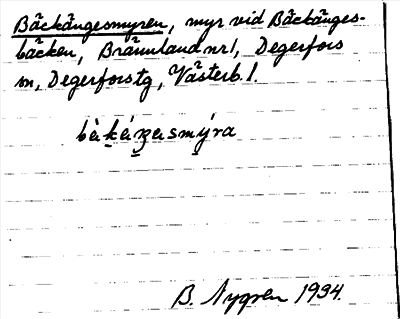 Bäckängesmyren, myr vid Bäckänges-
bäcken, Brännland nr 1, Degerfors
sn, Degerfors tg, Västerb. l.
B. Nygren 1934.